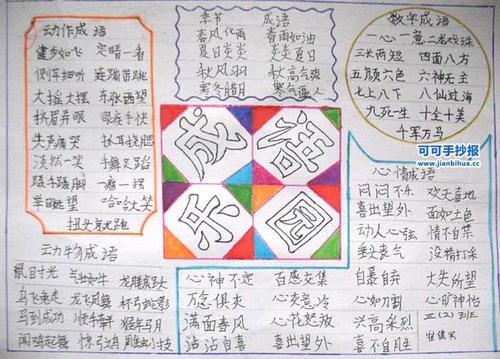 动作成语
健步如飞 定睛一看
侧耳细听
大摇大摆 东张西望
挤眉弄眼 眼疾手快
失声痛哭 抓耳挠腮
淡然一笑 手舞足蹈
蹑手蹑脚 一瘸一拐
举目眺望 哈哈大笑
扭头就跑
季节 成语
春风化雨 春雨如油
夏日炎炎 炎炎夏日
秋风 秋高气爽
寒冬腊月 寒气逼人
数字成语
一心一意 二龙戏珠
三长两短 四面八方
五颜六色 六神无主
七上八下 八仙过海
九死一生 十全十美
千军万马
可可手抄报
www.jianbihua.cc
成语
乐园
心情成语
闷闷不乐 欢天喜地
喜出望外 面如土色
动人心弦 情不自禁
垂头丧气 没精打采
自暴自弃 大失所望
心如刀割 心旷神怡
兴高采烈 五(2)班
喜不自胜
动物成语
鼠目寸光 气壮如牛 龙腾虎跃
龙飞凤舞 杯弓蛇影
马到成功 猴年马月
闻鸡起舞 惊弓之鸟 雕虫小技
心神不定 百感交集
万念俱灰 心灰意冷
满面春风 心花怒放
沾沾自喜 喜出望外